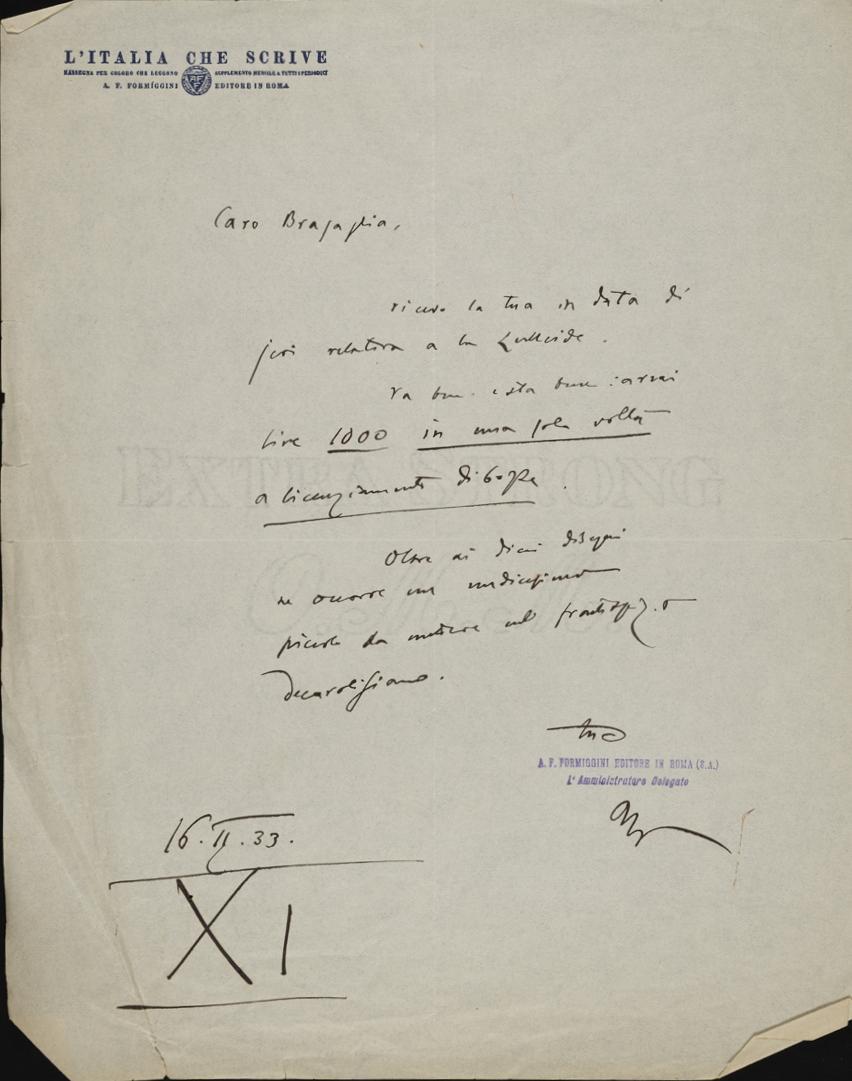 L'ITALIA CHE SCRIVE
RASSEGNA PER COLORO CHE LEGGONO SUPPLEMENTO MENSILE A TUTTI I PERIODICI
A. F. FORMÍGGINI EDITORE IN ROMA
Caro Bragaglia,
ricevo la tua in data di
jeri relativa a la
va bene e sta bene: avrai
lire 1000 in una sola volta
a licenziamento di bozze.
Oltre ai dieci disegni
ne occorre un
piccolo da mettere nel frontespizio
decarolisiano.
tuo
A. F. FORMIGGINI EDITORE IN ROMA (S.A.)
L'Amministratore Delegato
16.II.33.
XI
EXTRA STRONG